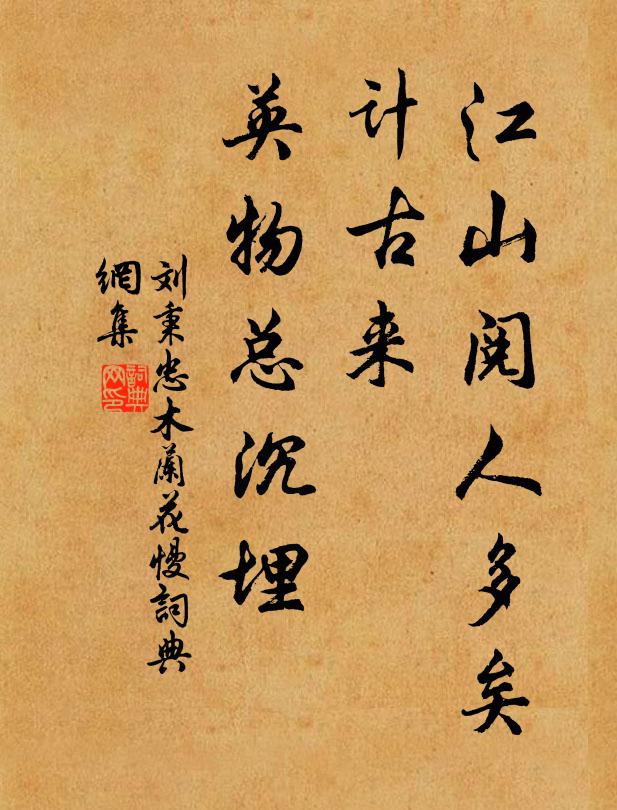 江山阅人多矣
计古来
英物总沉埋
刘秉忠木蘭花慢詞典
網集
詞典网印